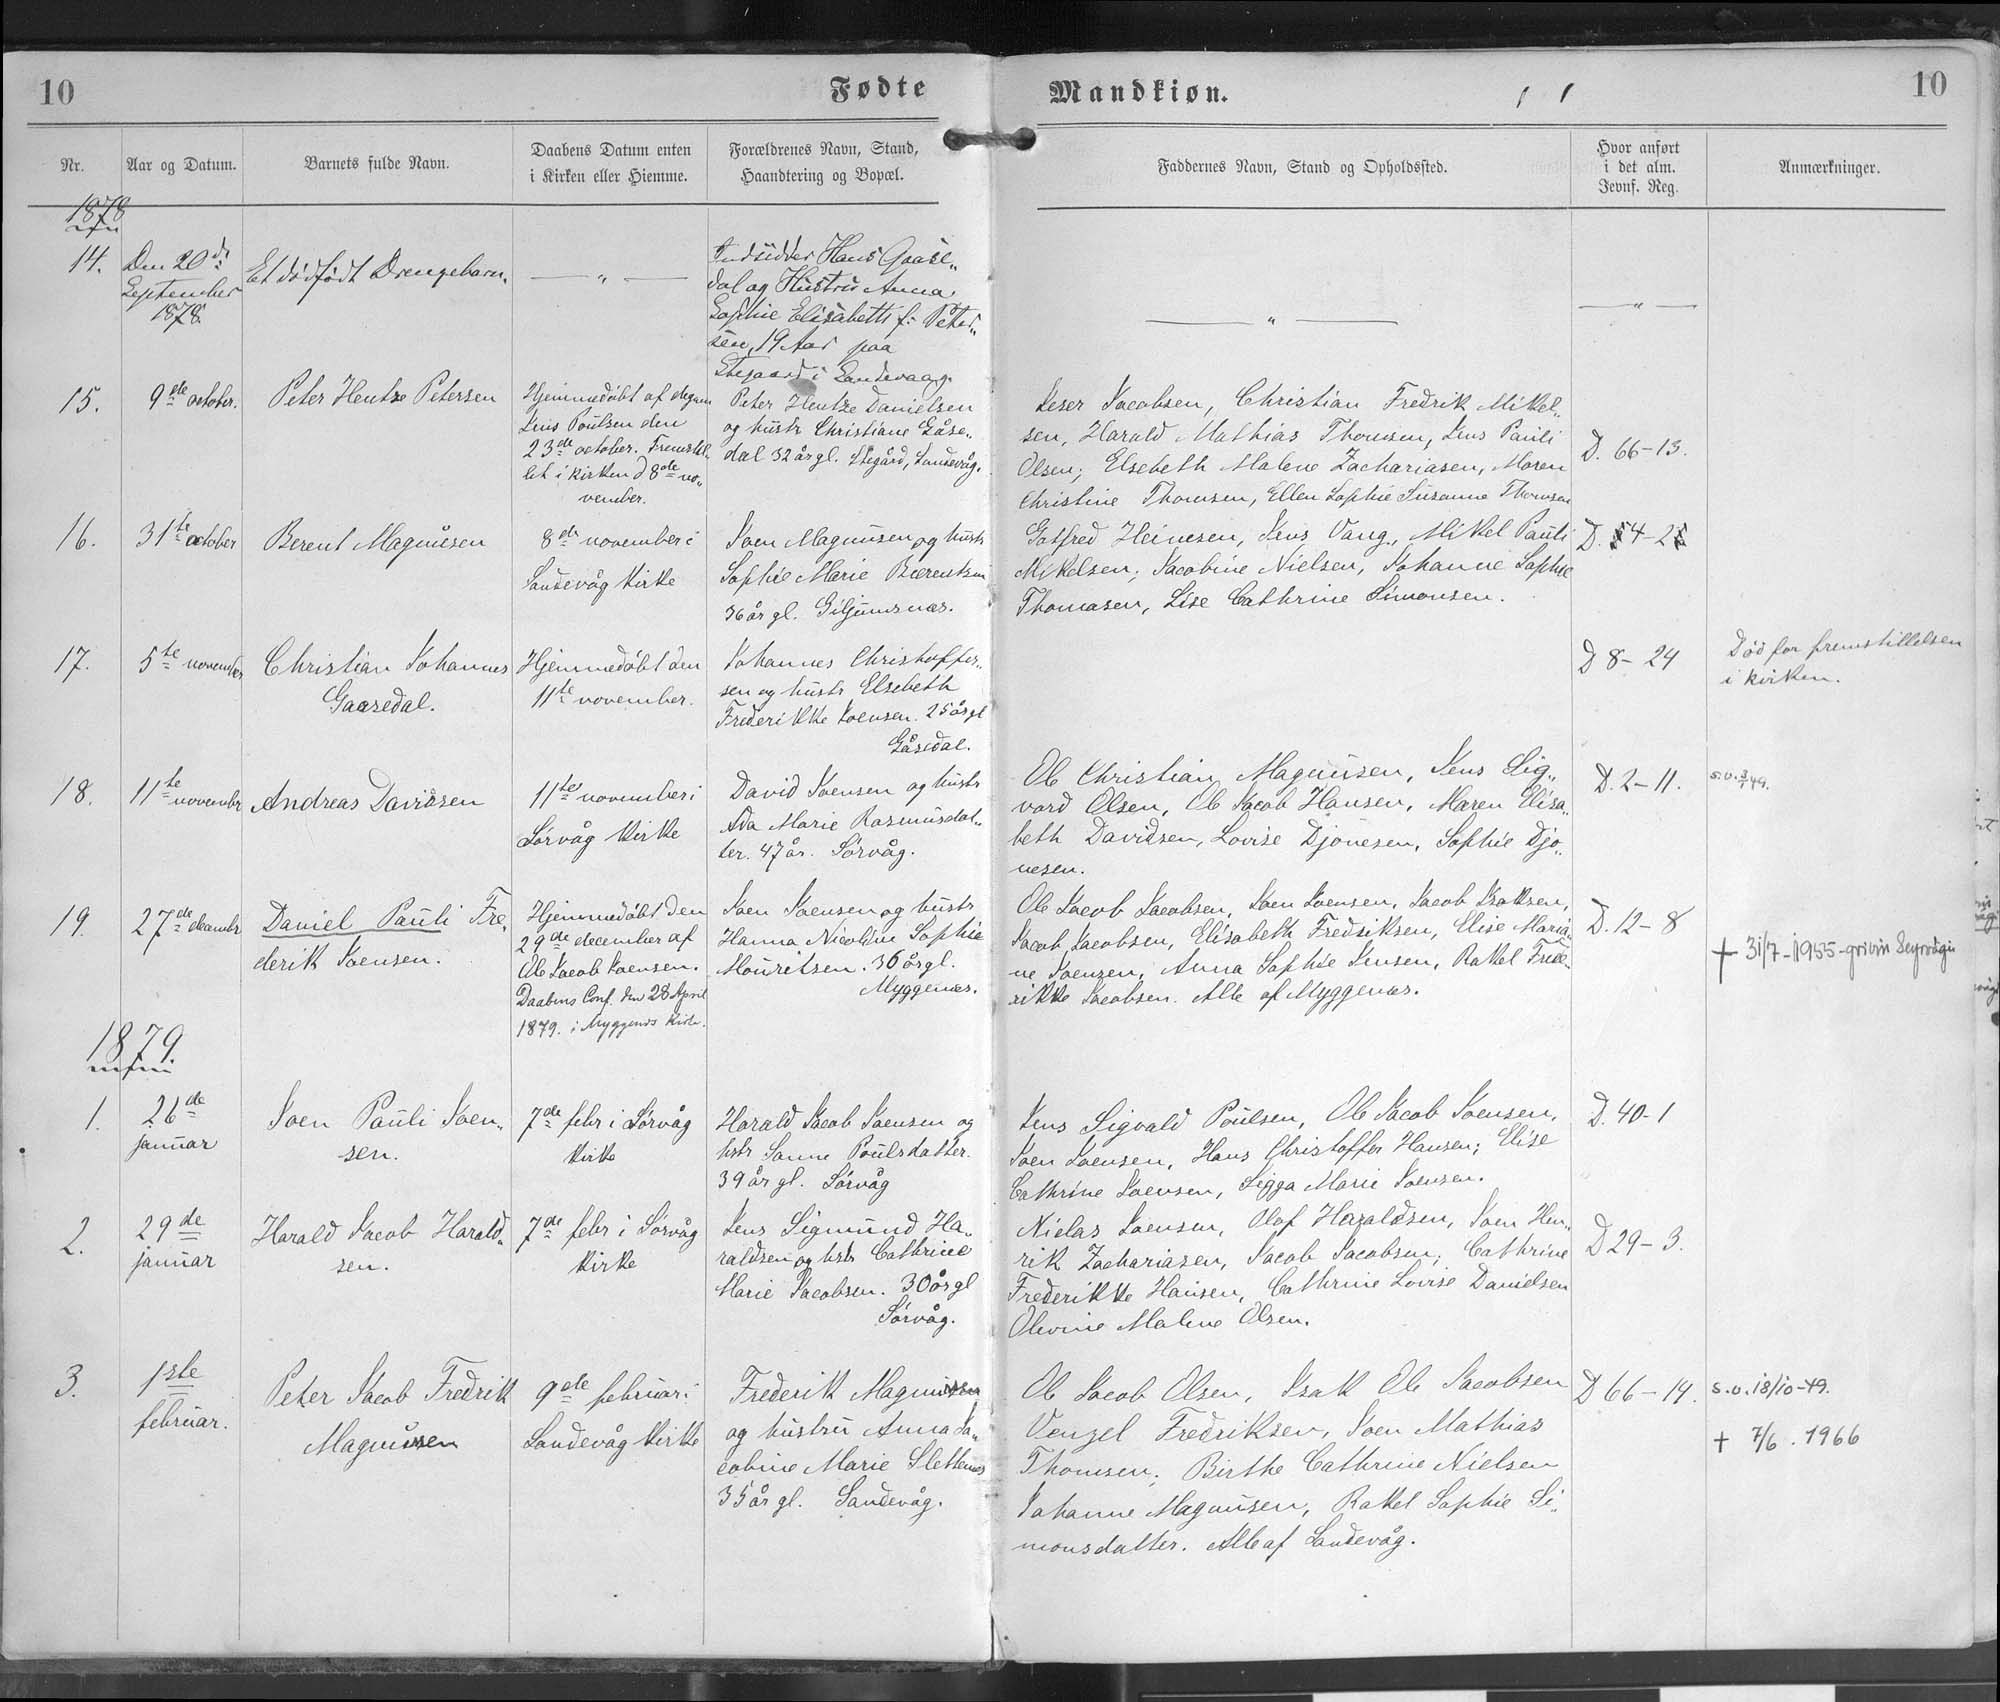 10
Fødte
Mandkiøn.
10
Nr.
Aar og Datum.
Barnets fulde Navn.
Daabens Datum enten
i Kirken eller Hiemme.
Forældrenes Navn, Stand,
Haandtering og Bopæl.
Faddernes Navn, Stand og Opholdssted.
Hvor anført
i det alm.
Jevnf. Reg.
Anmærkninger.
1878
14.
Den 20de
September
1878.
Et dødfødt Drengebarn.
— „ —
Indsidder Hans Gaase„
dal og Hustru Anna
Sophie Elisabeth f: Peter„
sen, 19 Aar paa
Stegaard i Sandevaag.
— „ —
— „ —
15.
9de october.
Peter Hentze Petersen
Hjemmedøbt af degnen
Jens Poulsen den
23de october. Fremstil„
let i kirken d 8de no„
vember.
Peter Hentze Danielsen
og hustr Christiane Gåse„
dal 32 år gl. Stegård, Sandevåg.
Jeser Jacobsen, Christian Fredrik Mikel„
sen, Harald Mathias Thomsen, Jens Pauli
Olsen; Elsebeth Malene Zachariasen, Maren
Christine Thomsen, Ellen Sophie Susanne Thomsen
D. 66-13.
16.
31te october
Berent Magnusen
8de november i
Sandevåg Kirke
Joen Magnusen og hustr
Sophie Marie Bærentsen
36 år gl. Giljumsnæs.
Gotfred Heinesen, Jens Vang, Mikel Pauli
Mikelsen; Jacobine Nielsen, Johanne Sophie
Thomasen, Lise Cathrine Simonsen.
17.
5te november
Christian Johannes
Gaasedal.
Hjemmedøbt den
11te november.
Johannes Christoffer„
sen og hustr Elsebeth
Frederikke Joensen. 25 år gl
Gåsedal.
D 8-24
Død før fremstillelsen
i kirken.
18.
11te novembr
Andreas Davidsen
11te november i
Sørvåg Kirke
David Joensen og hustr
Ada Marie Rasmusdat„
ter. 47 år. Sørvåg.
Ole Christian Magnusen, Jens Sig„
vard Olsen, Ole Jacob Hansen, Maren Elisa„
beth Davidsen, Lovise Djonesen, Sophie Djo„
nesen.
D. 2-11.
19.
27de decembr
Daniel Pauli Fre„
derik Joensen.
Hjemmedøbt den
29de december af
Ole Jacob Joensen.
Daabens Conf. den 28 April
1879. i Myggenæs Kirke.
Joen Joensen og hustr
Hanna Nicoline Sophie
Mouritsen. 36 år gl.
Myggenæs.
Ole Jacob Jacobsen, Joen Joensen, Jacob Isaksen,
Jacob Jacobsen, Elisabeth Fredriksen, Elise Maria„
ne Joensen, Anna Sophie Jensen, Rakel Frede„
rikke Jacobsen. Alle af Myggenæs.
D. 12-8
† 31/7-1955-grivin Seyrvágin
1879.
1.
26de
januar
Joen Pauli Joen„
sen.
7de febr i Sørvåg
Kirke
Harald Jacob Joensen og
hstr Sanne Poulsdatter.
39 år gl. Sørvåg
Jens Sigvald Poulsen, Ole Jacob Joensen,
Joen Joensen, Hans Christoffer Hansen; Elise
Cathrine Joensen, Sigga Marie Joensen.
D. 40-1
2.
29de
januar
Harald Jacob Harald„
sen.
7de febr i Sørvåg
Kirke
Jens Sigmund Ha„
raldsen og hstr Cathrine
Marie Jacobsen. 30 år gl
Sørvåg.
Niclas Joensen, Olaf Haraldsen, Joen Hen„
rik Zachariasen, Jacob Jacobsen; Cathrine
Frederikke Hansen, Cathrine Lovise Danielsen
Olevine Malene Olsen.
D 29-3.
3.
1ste
februar.
Peter Jacob Fredrik
Magnussen
9de februar i
Sandevåg Kirke
Frederik Magnussen
og hustru Anna Ja„
cobine Marie Slettenes
35 år gl. Sandevåg.
Ole Jacob Olsen, Isak Ole Jacobsen
Venzel Fredriksen, Joen Mathias
Thomsen; Birthe Cathrine Nielsen
Johanne Magnusen, Rakel Sophie Si„
monsdatter. Alle af Sandevåg.
D 66-14.
s.v. 18/10-49.
† 7/6. 1966